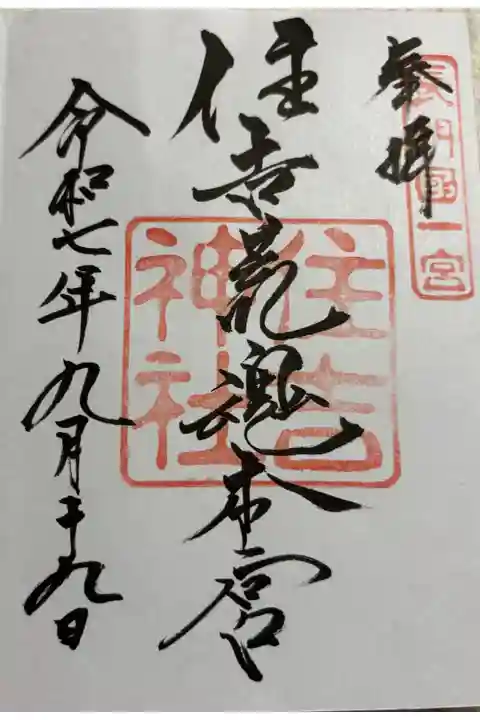 奉拝
長門國一宮
住吉荒魂本宮
住吉
神社
令和七年九月十九日